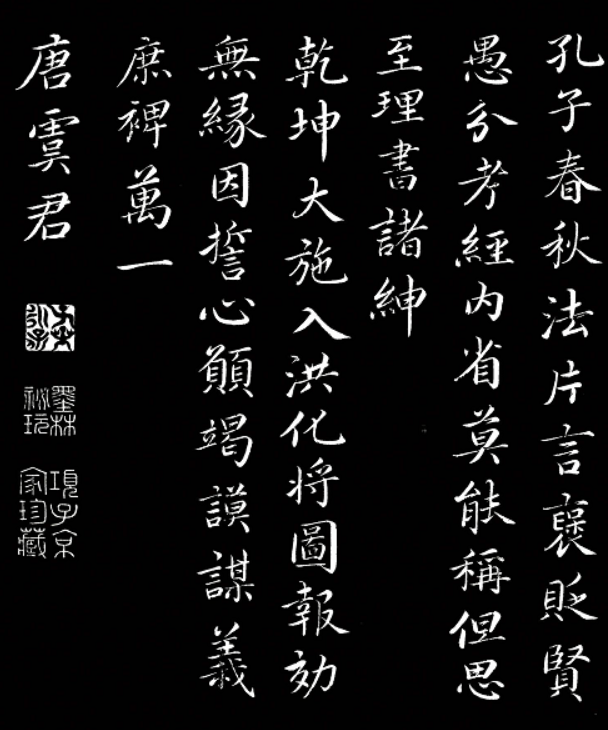 孔子春秋法片言褒貶賢
愚分考經内省莫能稱但思
至理書諸紳
乾坤大施入洪化将圖報効
無縁因誓心願竭謨謀義
庶裨萬一
唐虞君
墨林
祕玩
項子京
家珍藏